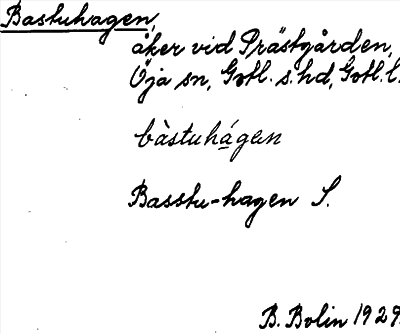 Bastuhagen,
åker vid Prästgården,
Öja sn, Gotl. s. hd, Gotl. l.
bàstuhágen
Basstu-hagen S.
B. Bolin 1929.